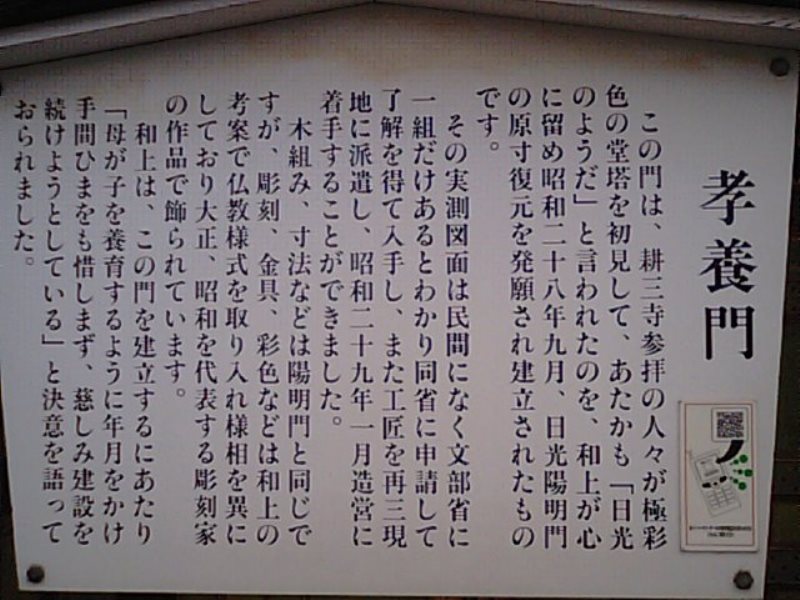 孝養門
この門は、耕三寺参拝の人々が極彩
色の堂塔を初見して、あたかも「日光
のようだ」と言われたのを、和上が心
に留め昭和二十八年九月、日光陽明門
の原寸復元を発願され建立されたもの
です。
その実測図面は民間になく文部省に
一組だけあるとわかり同省に申請して
了解を得て入手し、また工匠を再三現
地に派遣し、昭和二十九年一月造営に
着手することができました。
木組み、寸法などは陽明門と同じで
すが、彫刻、金具、彩色などは和上の
考案で仏教様式を取り入れ様相を異に
しており大正、昭和を代表する彫刻家
の作品で飾られています。
和上は、この門を建立するにあたり
「母が子を養育するように年月をかけ
手間ひまをも惜しまず、慈しみ建設を
続けようとしている」と決意を語って
おられました。